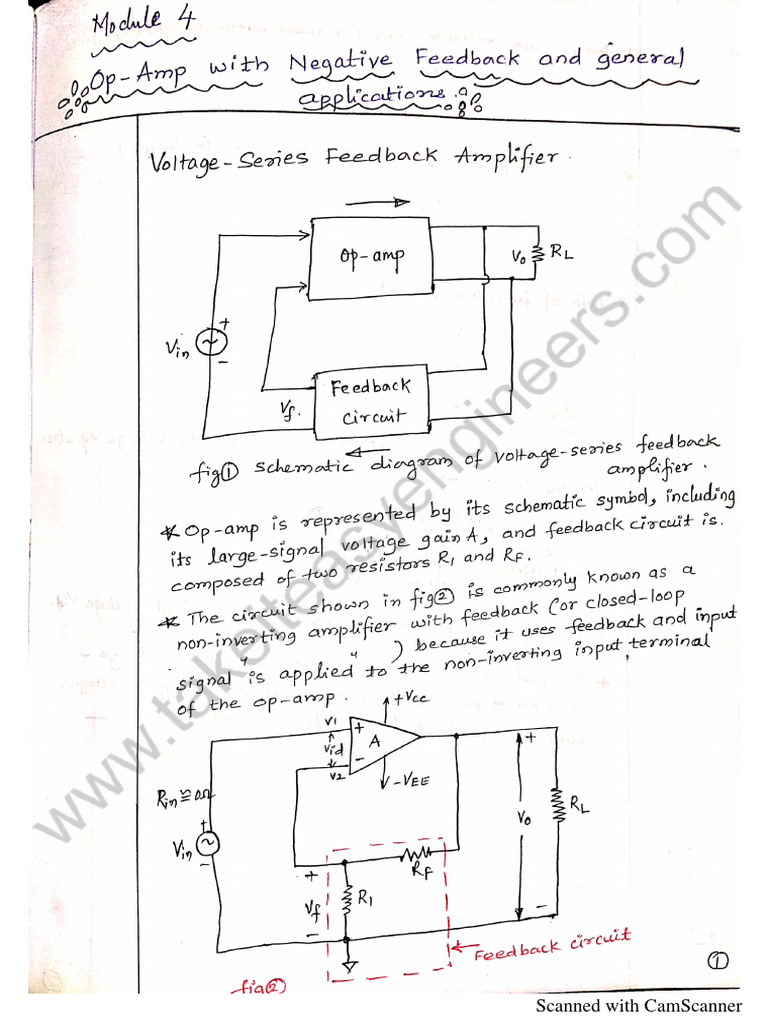 Module 4
Op-Amp with Negative Feedback and general
applications.
Voltage-Series Feedback Amplifier.
Op-amp
Vo
RL
+
Vin
-
Feedback
circuit
Vf.
fig① Schematic diagram of voltage-series feedback
amplifier.
* Op-amp is represented by its schematic symbol, including
its large-signal voltage gain A, and feedback circuit is.
composed of two resistors R1 and RF.
* The circuit shown in fig② is commonly known as a
non-inverting amplifier with feedback (or closed-loop
" " ) because it uses feedback and input
signal is applied to the non-inverting input terminal
of the op-amp.
+VCC
V1
+
A
Vid
-
V2
-VEE
+
Rin ≅ 0Ω
RL
Vo
+
Vin
-
RF
+
R1
Vf
-
-
Feedback circuit
①
fig②
www.takeiteasyengineers.com
Scanned with CamScanner